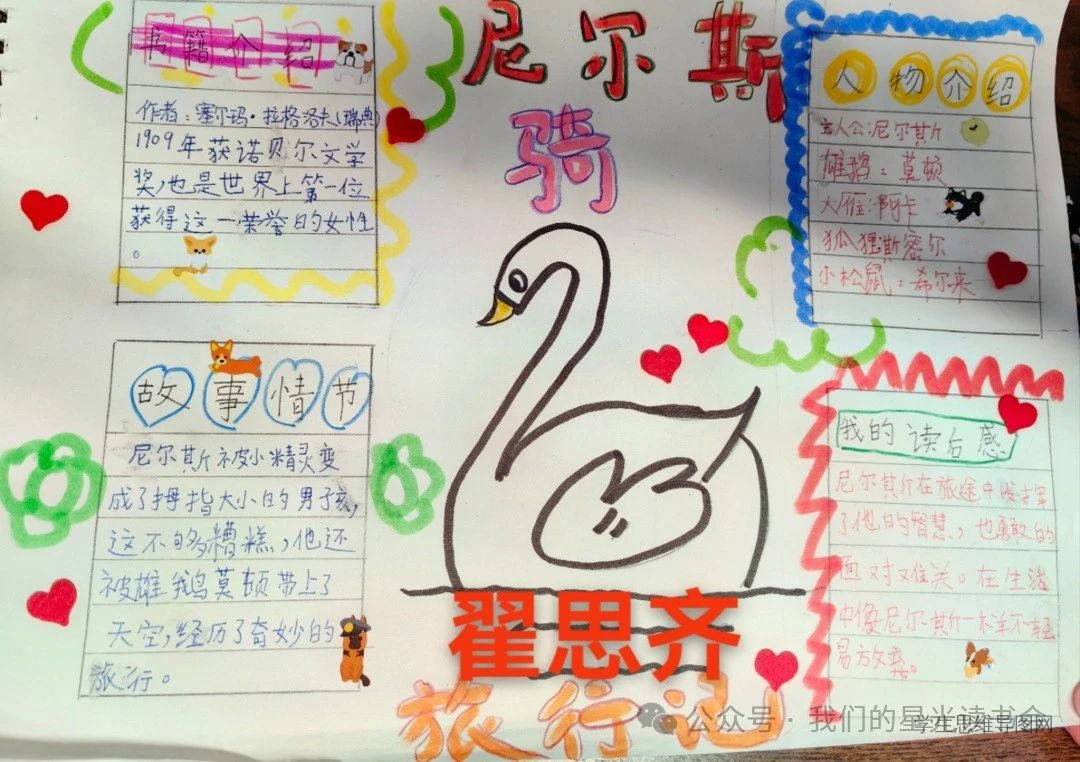 尼尔斯
骑
书籍介绍
作者：塞尔玛·拉格洛夫(瑞典)
1909年获诺贝尔文学
奖,也是世界上第一位
获得这一荣誉的女性
。
人物介绍
主人公:尼尔斯
雄鹅：莫顿
大雁:阿卡
狐狸:斯密尔
小松鼠：希尔来
故事情节
尼尔斯被小精灵变
成了拇指大小的男子孩,
这不够糟糕,他还
被雄鹅莫顿带上了
天空,经历了奇妙的
旅行。
我的读后感
尼尔斯在旅途中发挥
了他的智慧，也勇敢的
面对难关。在生活
中像尼尔斯一样不轻
易放弃。
翟思齐
旅行记
公众号·我们的星光读书会
学生思维导图网